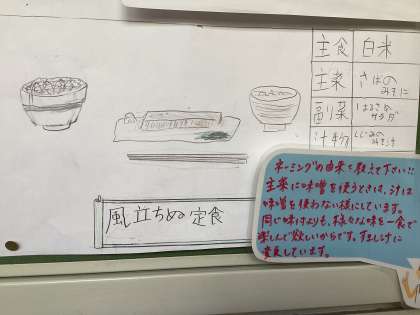 主食 白米
主菜 さばの
みそに
副菜 はるさめ
サラダ
汁物 しじみの
みそ汁
風立ちぬ 定食
ネーミングの由来も教えて下さい!!
主菜に味噌を使うときは、汁は
味噌を使わない様にしています。
同じ味付よりも、様々な味を一食で
楽しんで欲しいからです。すましに
変更しています。